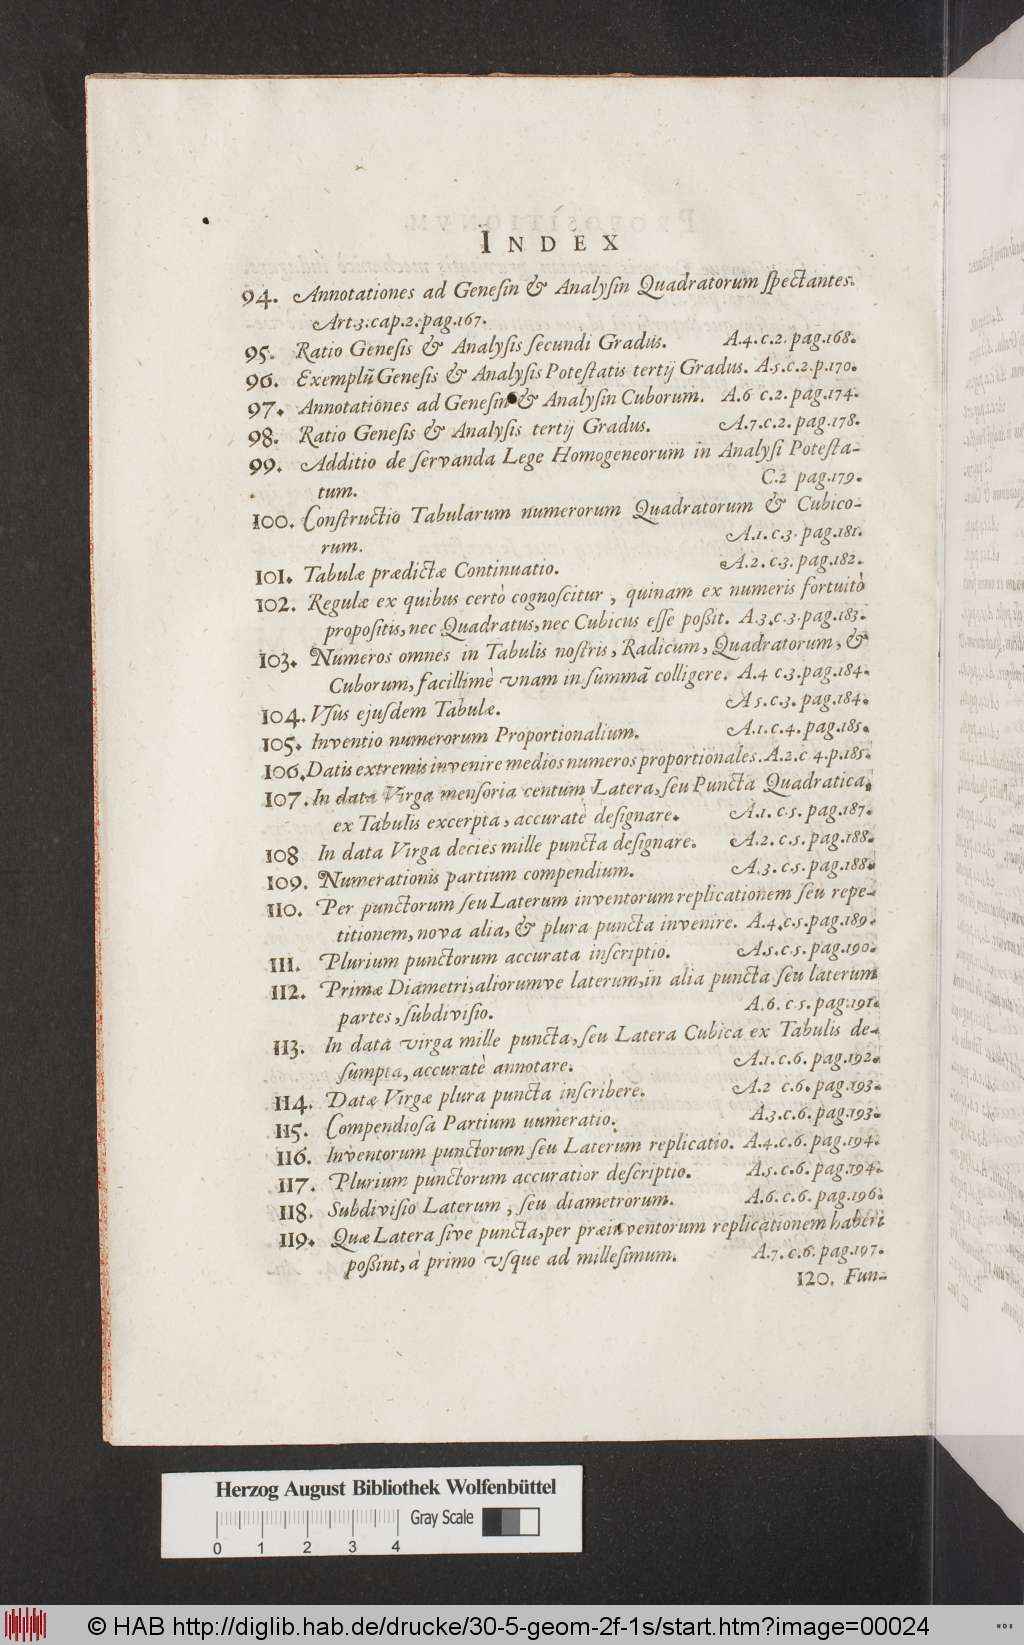 INDEX
94. Annotationes ad Genesin & Analysin Quadratorum spectantes.
Art.3.cap.2.pag.167.
95. Ratio Genesis & Analysis secundi Gradus. A.4.c.2.pag.168.
96. Exemplũ Genesis & Analysis Potestatis tertij Gradus. A.5.c.2.p.170.
97. Annotationes ad Genesin & Analysin Cuborum. A.6 c.2.pag.174.
98. Ratio Genesis & Analysis tertij Gradus. A.7.c.2.pag.178.
99. Additio de servanda Lege Homogeneorum in Analysi Potesta-
tum. C.2 pag.179.
100. Constructio Tabularum numerorum Quadratorum & Cubico-
rum. A.1.c.3.pag.181.
101. Tabulæ prædictæ Continuatio. A.2.c.3.pag.182.
102. Regulæ ex quibus certò cognoscitur, quinam ex numeris fortuitò
propositis, nec Quadratus, nec Cubicus esse poßit. A.3.c.3.pag.183.
103. Numeros omnes in Tabulis nostris, Radicum, Quadratorum, &
Cuborum, facillimè vnam in summã colligere. A.4 c.3.pag.184.
104. Vsus ejusdem Tabulæ. A 5.c.3.pag.184.
105. Inventio numerorum Proportionalium. A.1.c.4.pag.185.
106. Datis extremis invenire medios numeros proportionales. A.2.c 4.p.185.
107. In data Virga mensoria centum Latera, seu Puncta Quadratica,
ex Tabulis excerpta, accuratè designare. A.1.c.5.pag.187.
108 In data Virga decies mille puncta designare. A.2.c.5.pag.188.
109. Numerationis partium compendium. A.3.c.5.pag.188.
110. Per punctorum seu Laterum inventorum replicationem seu repe-
titionem, nova alia, & plura puncta invenire. A.4.c.5.pag.189.
111. Plurium punctorum accurata inscriptio. A.5.c.5.pag.190.
112. Primæ Diametri, aliorumve laterum, in alia puncta seu laterum
partes, subdivisio. A.6.c.5.pag.191.
113. In data virga mille puncta, seu Latera Cubica ex Tabulis de-
sumpta, accuratè annotare. A.1.c.6.pag.192.
114. Datæ Virgæ plura puncta inscribere. A.2 c.6.pag.193.
115. Compendiosa Partium uumeratio. A.3.c.6.pag.193.
116. Inventorum punctorum seu Laterum replicatio. A.4.c.6.pag.194.
117. Plurium punctorum accuratior descriptio. A.5.c.6.pag.194.
118. Subdivisio Laterum, seu diametrorum. A.6.c.6.pag.196.
119. Quæ Latera sive puncta, per præinventorum replicationem haberi
poßint, à primo vsque ad millesimum. A.7.c.6.pag.197.
120. Fun-
Herzog August Bibliothek Wolfenbüttel
Gray Scale
0 1 2 3 4
© HAB http://diglib.hab.de/drucke/30-5-geom-2f-1s/start.htm?image=00024